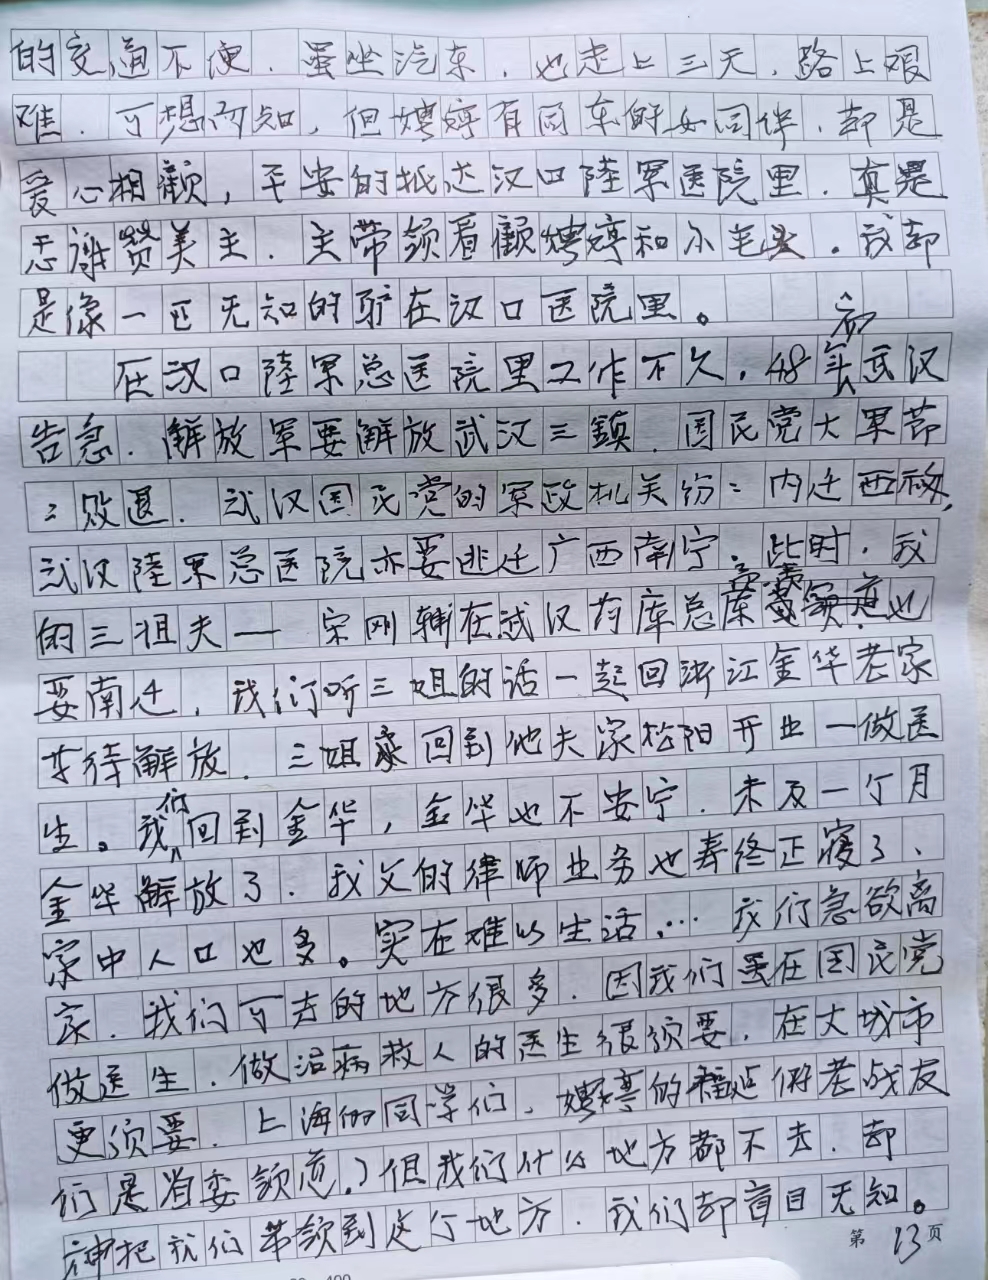 的交通不便．虽坐汽车，也走上三天，路上艰
难．可想而知，但娉婷有同车的女同伴．却是
爱心相顧，平安的抵达汉口陸军医院里．真是
感谢赞美主．主带领看顧娉婷和小毛头．我却
是像一匹无知的驴在汉口医院里。
在汉口陸军总医院里工作不久．48年初武汉
告急．解放军要解放武汉三鎮．国民党大军节
：败退．武汉国民党的军政机关纷：内迁西移，
武汉陸军总医院亦要逃迁广西南宁．此时．我
的三姐夫——宋刚輔在武汉药库总库 也
要南迁，我们听三姐的话一起回浙江金华老家
等待解放．三姐家回到他夫家松阳开业一做医
生。我们回到金华，金华也不安宁．未及一个月
金华解放了．我父的律师业务也寿终正寝了、
家中人口也多。实在难以生活… 我们急欲离
家．我们可去的地方很多．因我们虽在国民党
做医生．做治病救人的医生很须要．在大城市
更须要．上海的同学们．娉婷的 老战友
们是省委領导．）但我们什么地方都不去．却
神把我们带領到这个地方．我们却盲目无知。
第 13 页